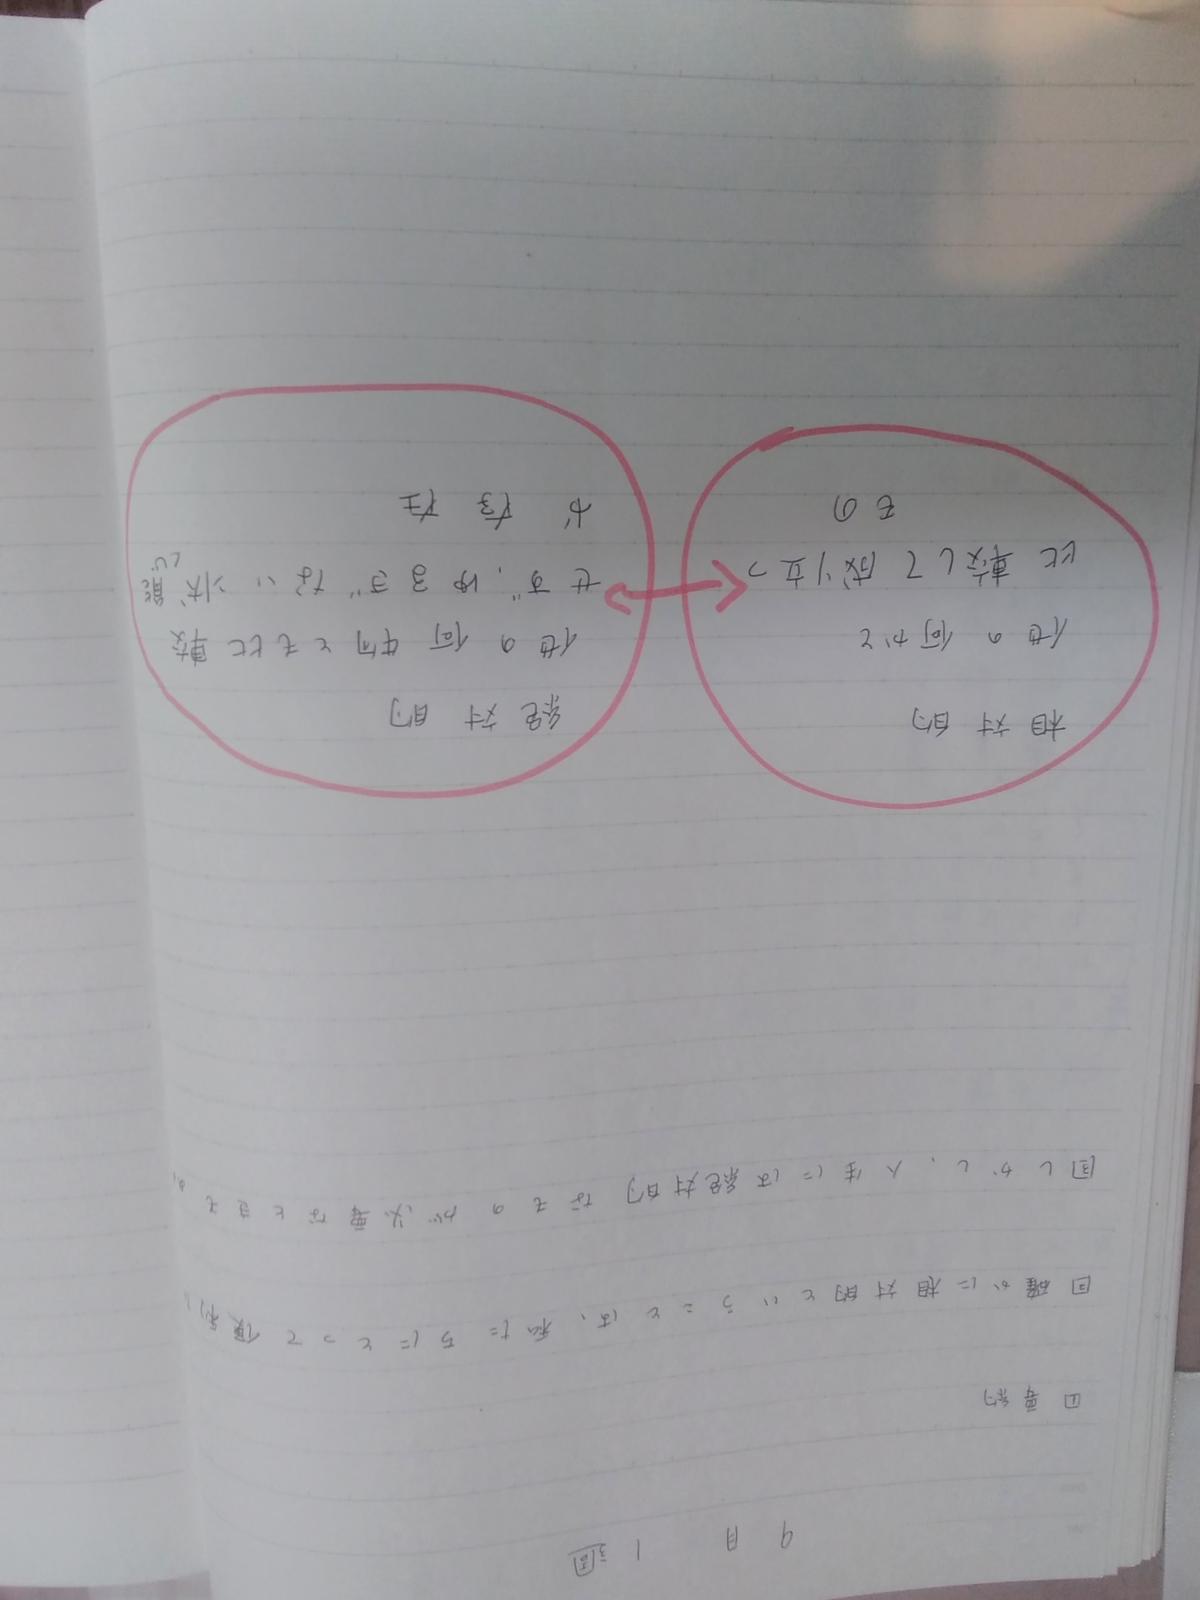 9月 1週
要約
確かに相対的ということは、私たちにとって便利
しかし、人生には絶対的なものが必要なときもあ
相対的
他の何かと
比較して成り立つ
もの
絶対的
他の何物とも比較
せず、ゆるぎない状態
か存在